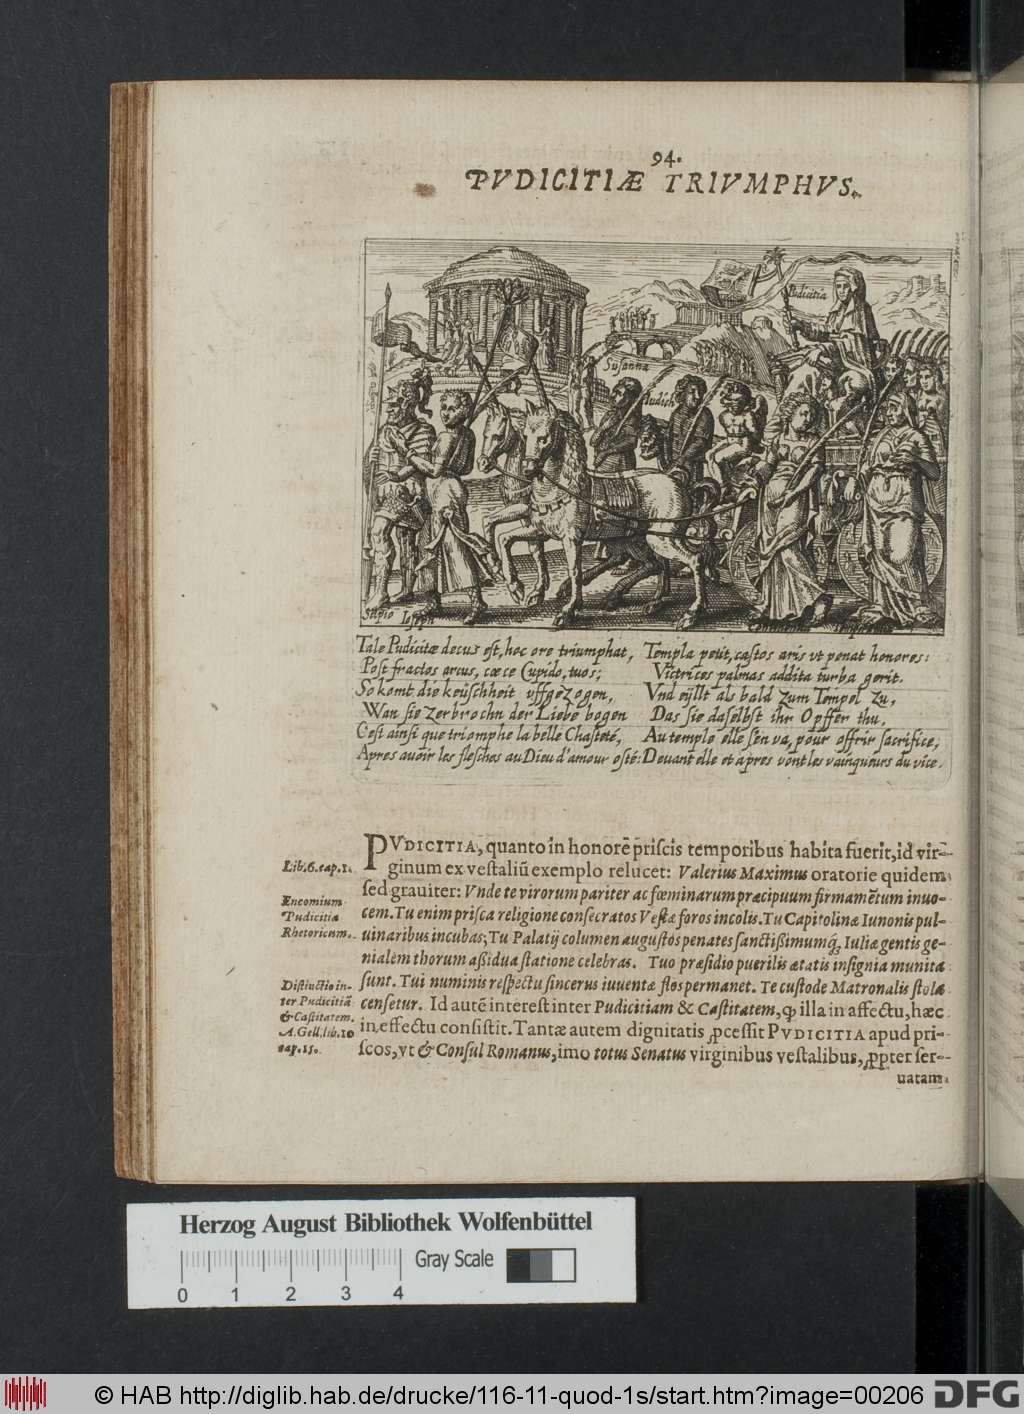 94.
PVDICITIÆ TRIVMPHVS.
Pudicitia
Susanna
Iudich
Scipio Ioseph
Tale Pudicitæ decus est, hoc ore triumphat,
Post fractos arcus, cœce Cupido, tuos;
So komt die keüschheit vffgezogen,
Wan sie zerbrochn der Liebe bogen
C'est ainsi que triomphe la belle Chasteté,
Apres auoir les flesches au Dieu d'amour osté:
Templa petit, castos aris vt penat honores:
Victrices palmas addita turba gerit.
Vnd eÿllt als bald zum Tempel zu,
Das sie daselbst ihr Opffer thu,
Au temple elle s'en va, pour offrir sacrifice,
Deuant elle et apres vont les vainqueurs du vice.
PVDICITIA, quanto in honorē priscis temporibus habita fuerit, id vir-
ginum ex vestaliū exemplo relucet: Valerius Maximus oratorie quidem
sed grauiter: Vnde te virorum pariter ac fœminarum præcipuum firmamētum inuo-
cem. Tu enim prisca religione consecratos Vestæ foros incolis. Tu Capitolinæ Iunonis pul-
uinaribus incubas; Tu Palatij columen augustos penates sanctißimumq́; Iuliæ gentis ge-
nialem thorum aßidua statione celebras. Tuo præsidio puerilis ætatis insignia munita
sunt. Tui numinis respectu sincerus iuuentæ flos permanet. Te custode Matronalis stola
censetur. Id autē interest inter Pudicitiam & Castitatem, ꝙ illa in affectu, hæc
in effectu consistit. Tantæ autem dignitatis ꝓcessit PVDICITIA apud pri-
scos, vt & Consul Romanus, imo totus Senatus virginibus vestalibus, ꝓpter ser-
uatam
Lib. 6. cap. 1.
Encomium
Pudicitiæ
Rhetoricum.
Distinctio in-
ter Pudicitiã
& Castitatem.
A. Gell. lib. 10
cap. 15.
Herzog August Bibliothek Wolfenbüttel
Gray Scale
0 1 2 3 4
© HAB http://diglib.hab.de/drucke/116-11-quod-1s/start.htm?image=00206 DFG